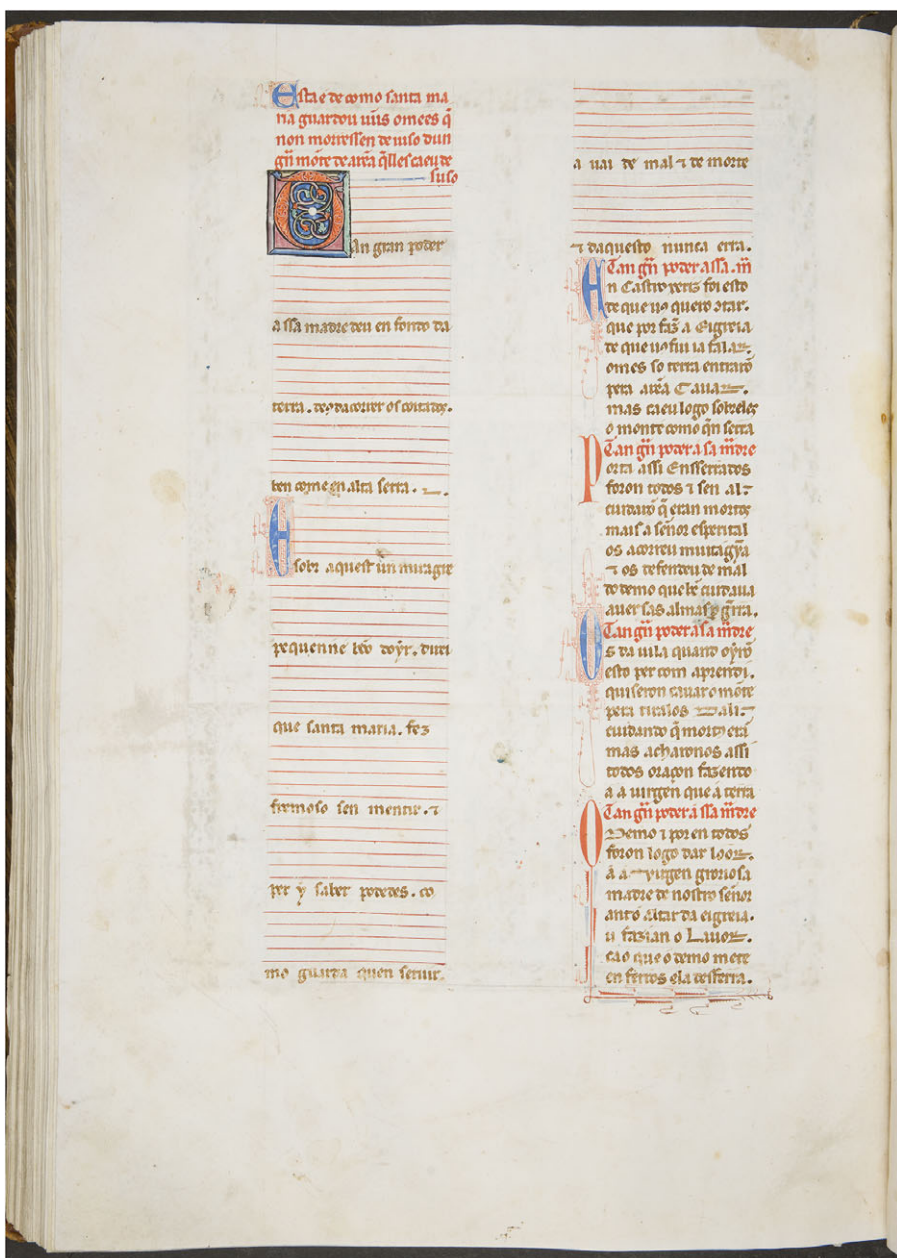 Esta e de como santa ma
ria guardou uũs omẽes q̃
non morressen de iuso dun
gñ mõte de arẽa q̃lles caeu de
suso
Tan gran poder
a ssa madre deu en fondo da
terra. de
ben come en alta serra.
E sobr aquest un miragre
pequenne bẽo doyr. direi
que santa maria. fez
fremoso sen mentir. ⁊
per y saber podedes. co
mo guarda quen seruir.
a uai de mal ⁊ de morte
⁊ daquesto nunca erra.
Tan gñ poder a ssa. m̃
En Castro xeris foi esto
de que uꝰ quero ↄtar.
que por faz̃ a Eigreia
de que uꝰ fui ia falar.
omẽs so terra entrarõ
pera arẽa Cauar.
mas caeu logo sobreles
o monte como qñ serra
Tan gñ poder a sa m̃dre
Porta assi Ensserrados
foron todos ⁊ sen al
cuidarõ q̃ eran mortos
mais a señor espirital
os acorreu
⁊ os defendeu de mal
do demo que bẽ cuidaua
auer sas almas
Tan gñ poder a sa m̃dre
Os da uila quando oyrõ
esto per com aprendi.
quiseron cauar o mõte
pera tiralos Dali
cuidando q̃ mortꝰ erã
mas acharonos assi
todos oraçon fazendo
a a uirgen que á terra
Tan gñ poder á ssa m̃dre
O Demo ⁊ por en todos
foron logo dar loor.
á a uirgen groriosa
madre de nostro señor
ant o altar da eigreia.
u fazian o Lauor.
cao que o demo mete
en ferros ela desserra.